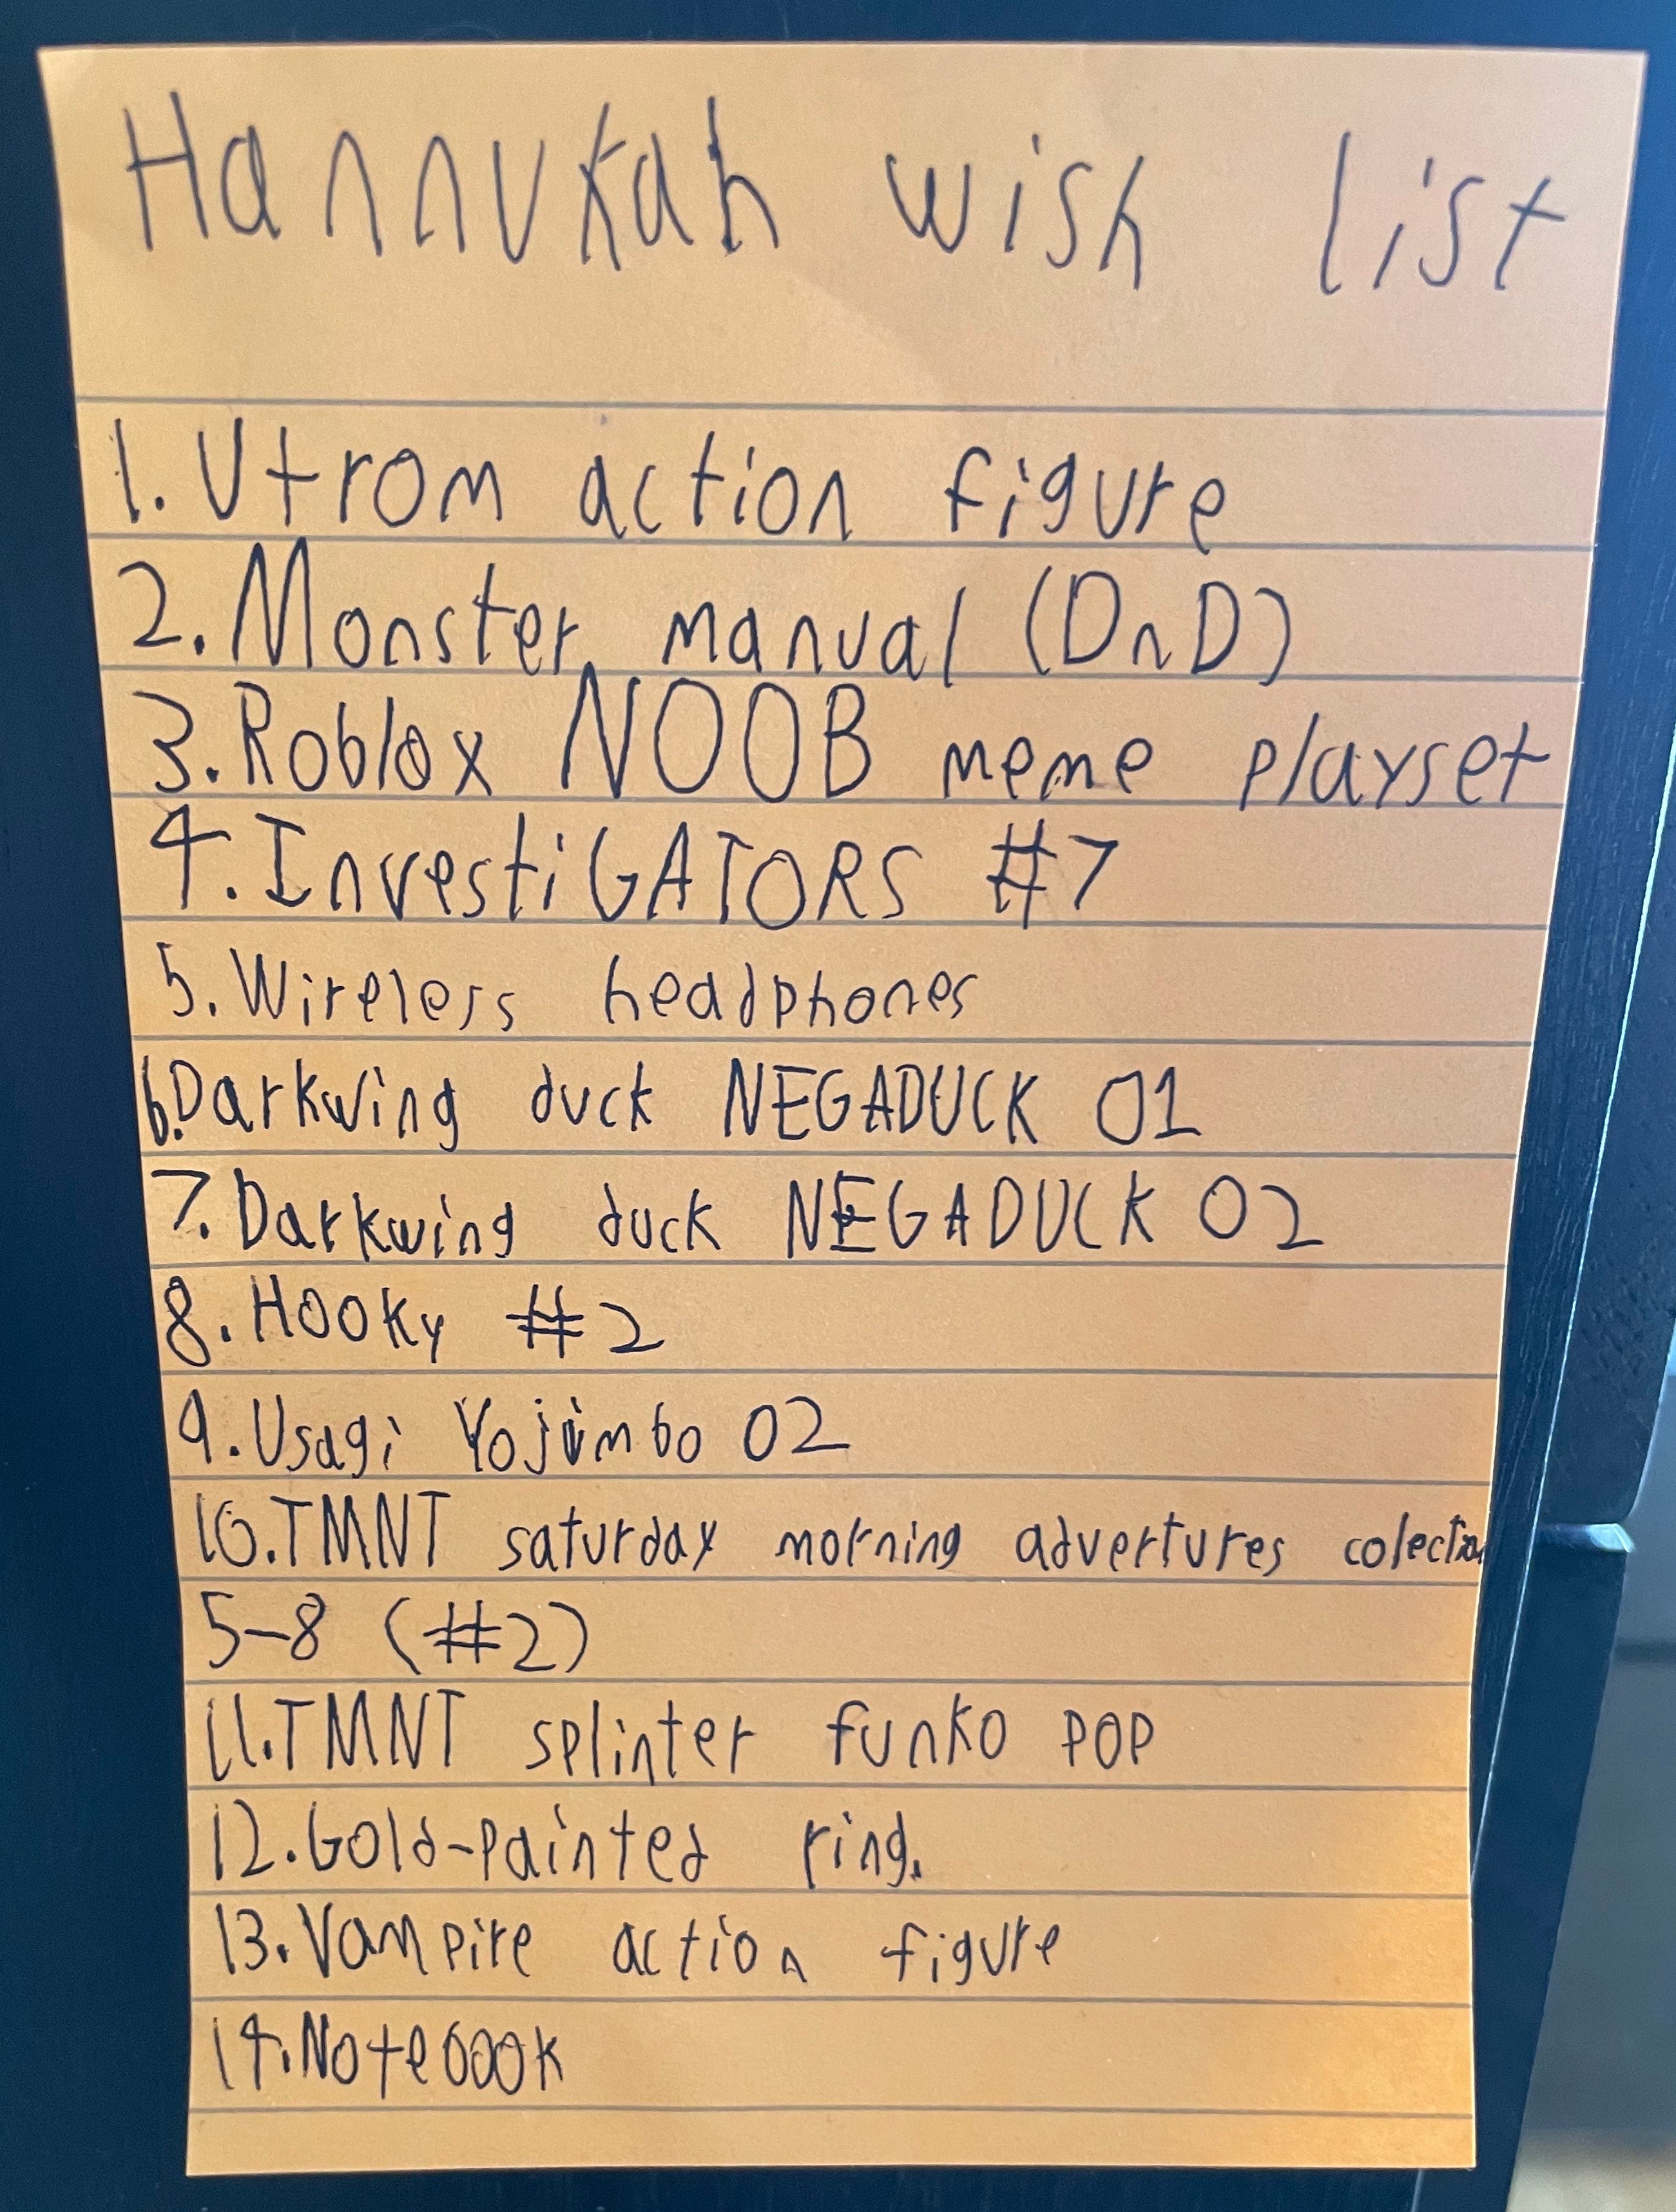 Hannukah wish list
1. Utrom action figure
2. Monster manual (DnD)
3. Roblox NOOB meme playset
4. InvestiGATORS #7
5. Wireless headphones
6. Darkwing duck NEGADUCK 01
7. Darkwing duck NEGADUCK 02
8. Hooky #2
9. Usagi Yojimbo 02
10. TMNT saturday morning advertures colection
5-8 (#2)
11. TMNT splinter funko pop
12. Gold-painted ring.
13. Vampire action figure
14. Notebook